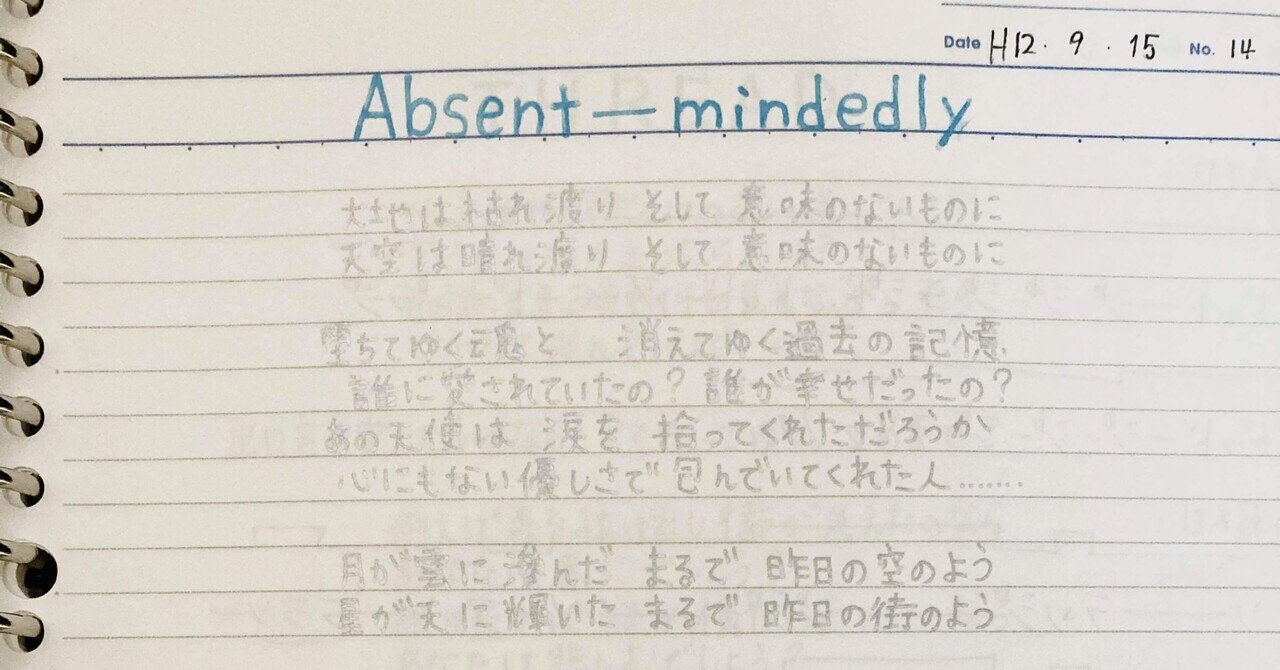 Date H12・9・15 No. 14
Absent—mindedly
大地は枯れ渡り そして 意味のないものに
天空は晴れ渡り そして 意味のないものに
堕ちてゆく魂と 消えてゆく過去の記憶
誰に愛されていたの？誰が幸せだったの？
あの天使は 涙を 拾ってくれただろうか
心にもない優しさで 包んでいてくれた人.......
月が雲に滲んだ まるで 昨日の空のよう
星が天に輝いた まるで 昨日の街のよう